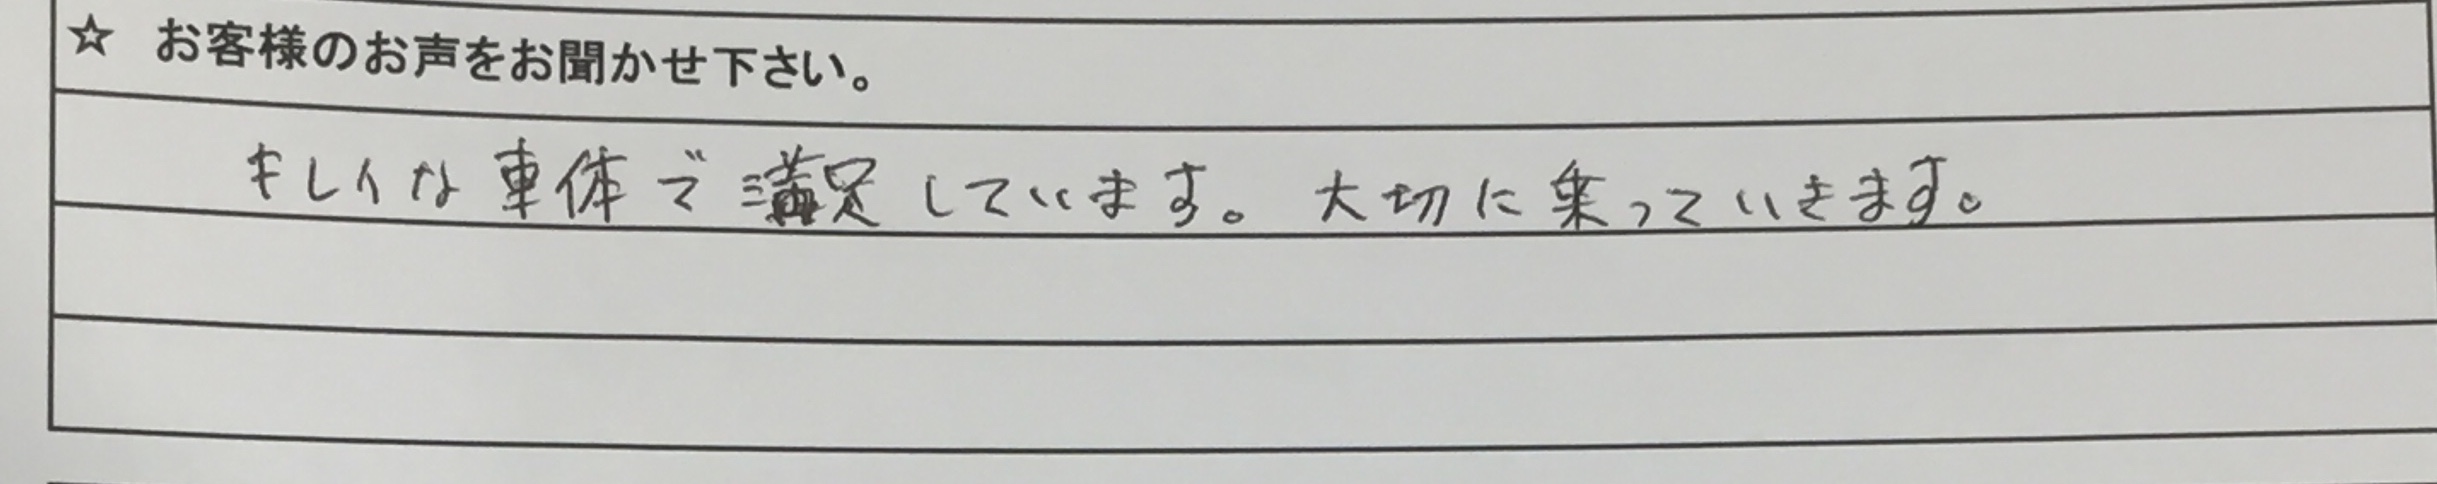 ☆ お客様のお声をお聞かせ下さい。
キレイな車体で満足しています。大切に乗っていきます。